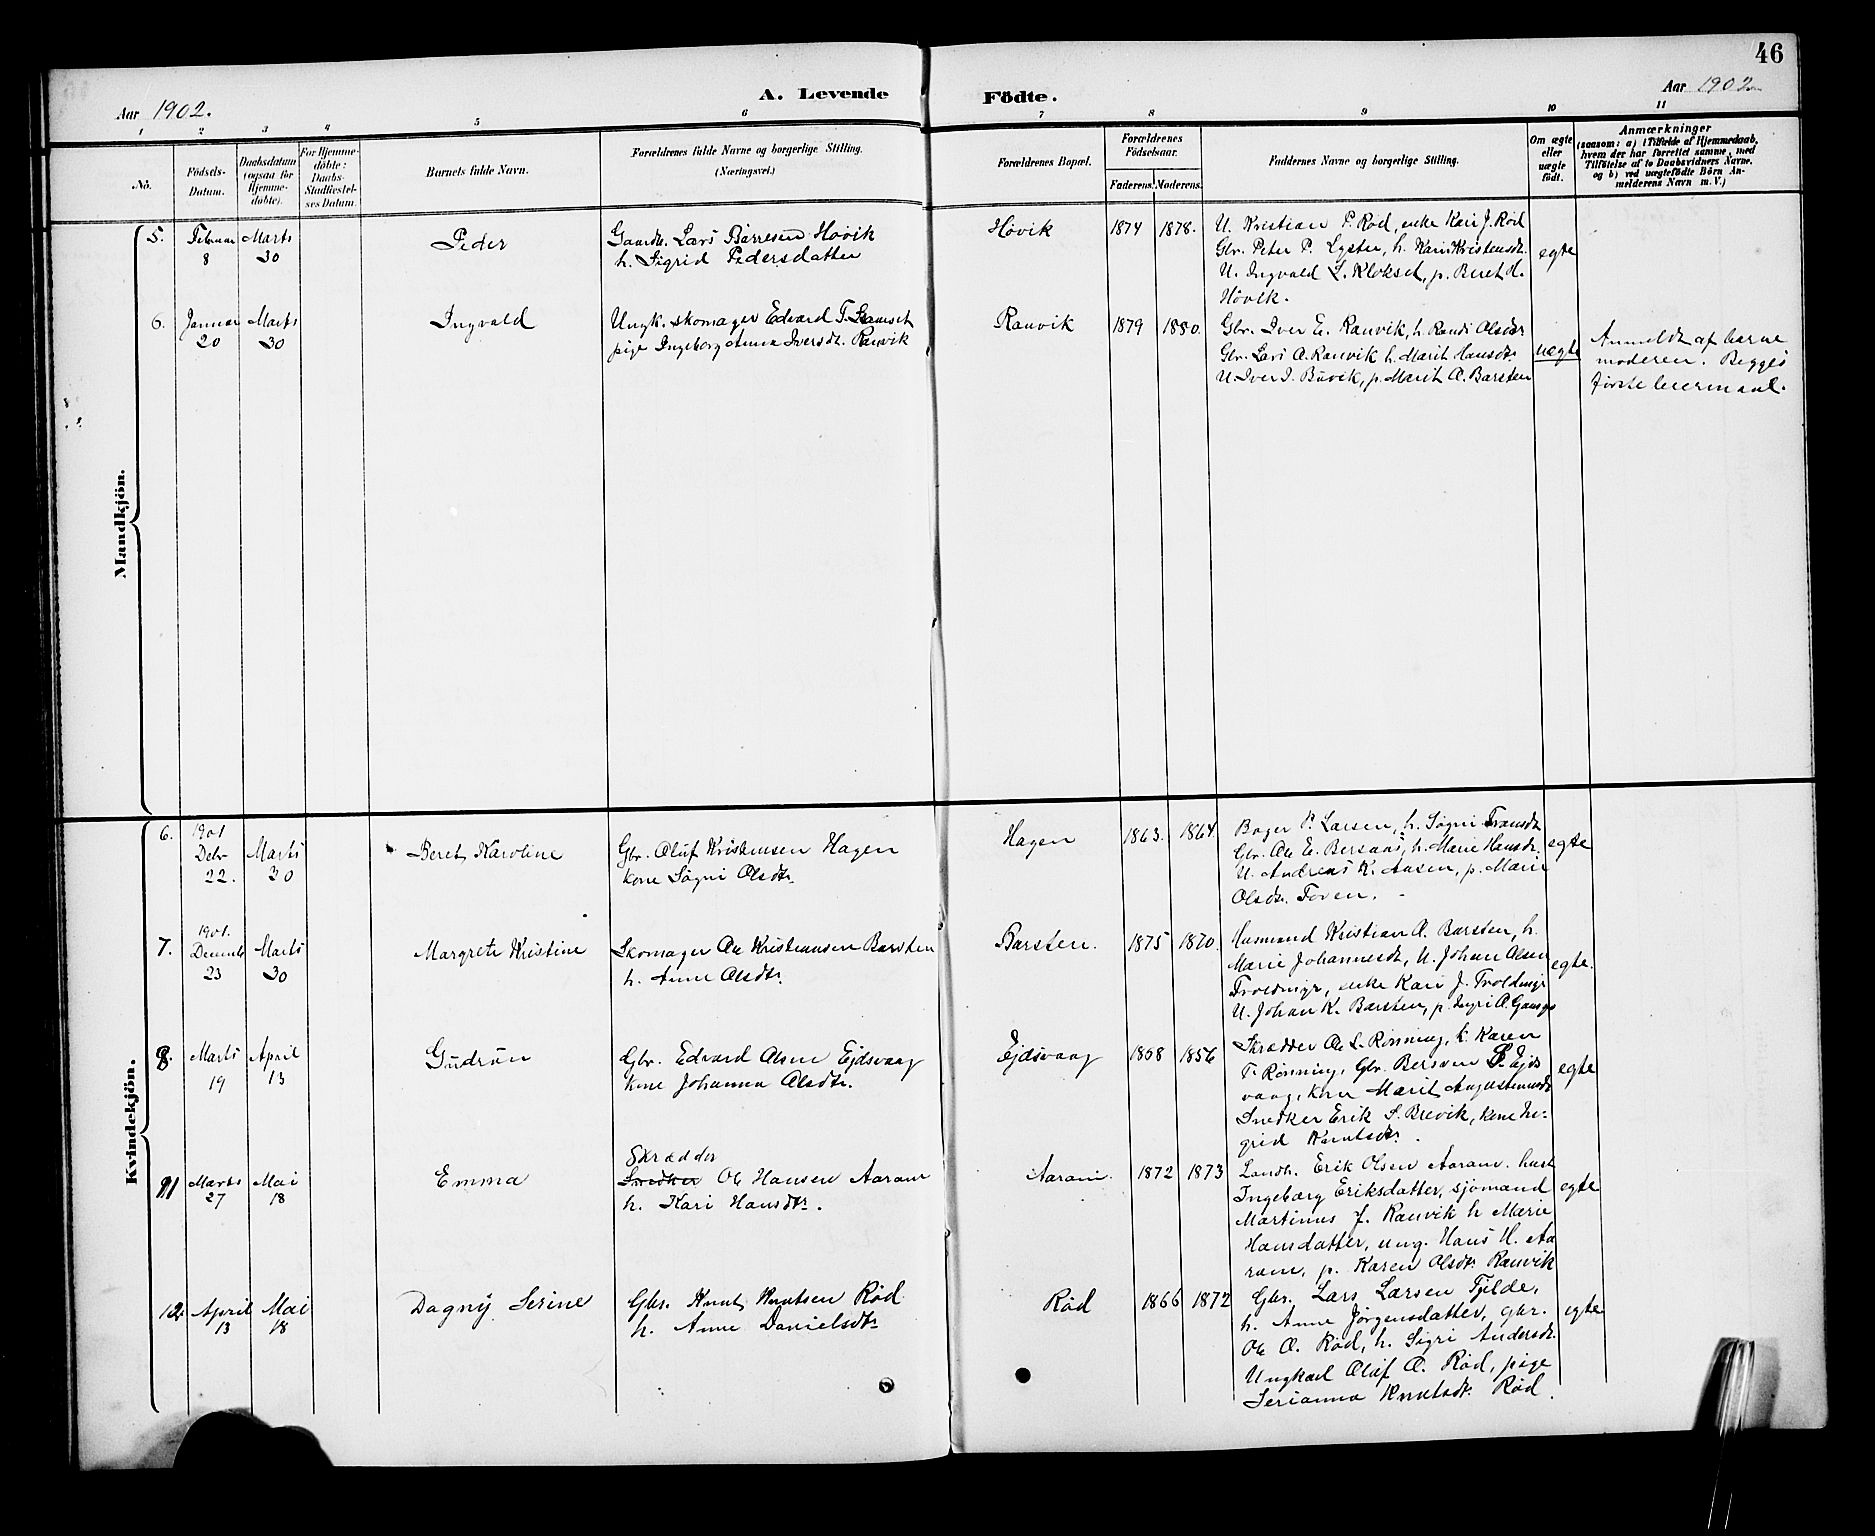 46
Aar 1902.
A. Levende Fødte.
Aar 1902
1 2 3 4 5 6 7 8 9 10 11
No.
Fødsels-Datum.
Daabsdatum (ogsaa for Hjemme-døbte).
For Hjemme-døbte: Daabs-Stadfæstel-ses Datum.
Barnets fulde Navn.
Forældrenes fulde Navne og borgerlige Stilling. (Næringsvei.)
Forældrenes Bopæl.
Forældrenes Fødselsaar.
Faderens. Moderens.
Faddernes Navne og borgerlige Stilling.
Om ægte eller uægte født.
Anmærkninger
(saasom: a) i Tilfælde af Hjemmedaab,
hvem der har forrettet samme, med
Tilføielse af to Daabsvidners Navne.
og b) ved uægtefødte Børn An-
melderens Navn m. V.)
Mandkjøn.
5. Februar 8 Marts 30
Peder
Gaardb. Lars Børresen Høvik
h. Sigrid Pedersdatter
Høvik 1874 1878.
U. Kristian P. Rød, enke Kari J. Rød
Gbr. Peter P. Lyster, h. Kari Kristensdt.
U. Ingvald L. Klokset, p. Beret H.
Høvik.
egte
6. Januar 20 Marts 30
Ingvald
Ungk. skomager Edvard T.
pige Ingeborg Anna Iversdt. Ranvik
Ranvik 1879 1880.
Gbr. Iver E. Ranvik, h. Randi Olsdtr
Gbr. Lars A. Ranvik h. Marit Hansdtr
U. Iver I. Buvik, p. Marit A. Barsten
uægte
Anmeldt af barne
moderen. Begges
første leiermaal.
Kvindekjøn.
6. 1901 Debr 22. Marts 30
Beret Karoline
Gbr. Oluf Kristensen Hagen
kone Sygni Olsdtr.
Hagen 1863. 1864.
Bager P. Larsen, h. Sygni Fransdt
Gbr. Ole E. Bersaas, h. Marie Hansdt.
U. Andreas K. Aasen, p. Marie
Olsdtr. Toven.
egte
7. 1901. Decemb 23 Marts 30
Margrete Kristine
Skomager Ole Kristiansen Barsten
h. Anne Olsdtr.
Barsten. 1875 1870.
Husmand Kristian A. Barsten, h.
Marie Johannesdt, U. Johan Olsen
Troldmyr, enke Kari J. Troldmyr
U. Johan K. Barsten, p. Ingri A.
egte.
8. Marts 19 April 13
Gudrun
Gbr. Edvard Olsen Ejdsvaag
kone Johanna Olsdtr.
Ejdsvaag 1868 1856
Skrædder Ole L. Rønning, k. Karen
T. Rønning, Gbr. Bersven S. Ejds
vaag, kone Marit Augustinusdt
Snedker Erik S. Brevik, kone In-
grid Knutsdtr.
egte
11 Marts 27 Mai 18
Emma
Skrædder
Snedker Ole Hansen Aaram
h. Kari Hansdtr.
Aaram. 1872 1873
Landh. Erik Olsen Aaram. hust
Ingeborg Eriksdatter, sjømand
Martinus J. Ranvik h Marie
Hansdatter, ung. Hans H. Aa
ram, p. Karen Olsdtr Ranvik
egte
12. April 13 Mai 18
Dagny Serine
Gbr. Knut Knutsen Rød
h. Anne Danielsdtr
Rød 1866 1872
Gbr. Lars Larsen Tjelde,
h. Anne Jørgensdatter, gbr.
Ole O. Rød, h. Sigri Andersdt.
Ungkarl Oluf O. Rød, pige
Serianna Knutsdtr Rød.
egte